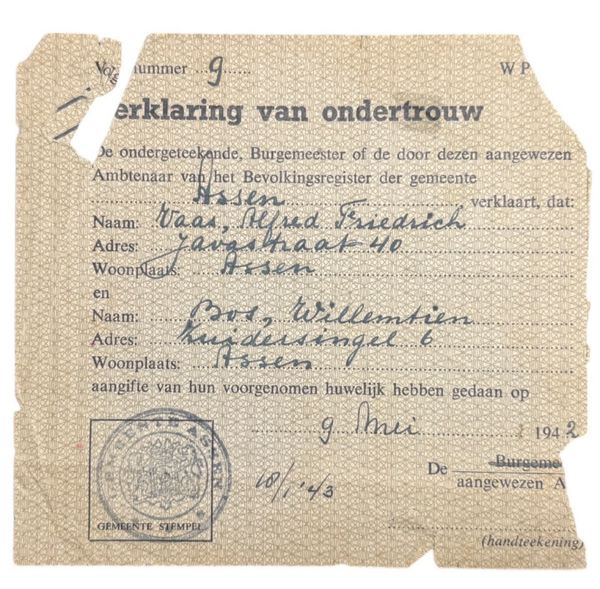 Volgnummer 9 W P
Verklaring van ondertrouw
De ondergeteekende, Burgemeester of de door dezen aangewezen
Ambtenaar van het Bevolkingsregister der gemeente
Assen verklaart, dat:
Naam: Vaas, Alfred Friedrich
Adres: Javastraat 40
Woonplaats: Assen
en
Naam: Bos, Willemtien
Adres: Zuidersingel 6
Woonplaats: Assen
aangifte van hun voorgenomen huwelijk hebben gedaan op
9 Mei 1942
De Burgeme
aangewezen A
18/1 '43
GEMEENTE ASSEN
GEMEENTE STEMPEL
(handteekening)